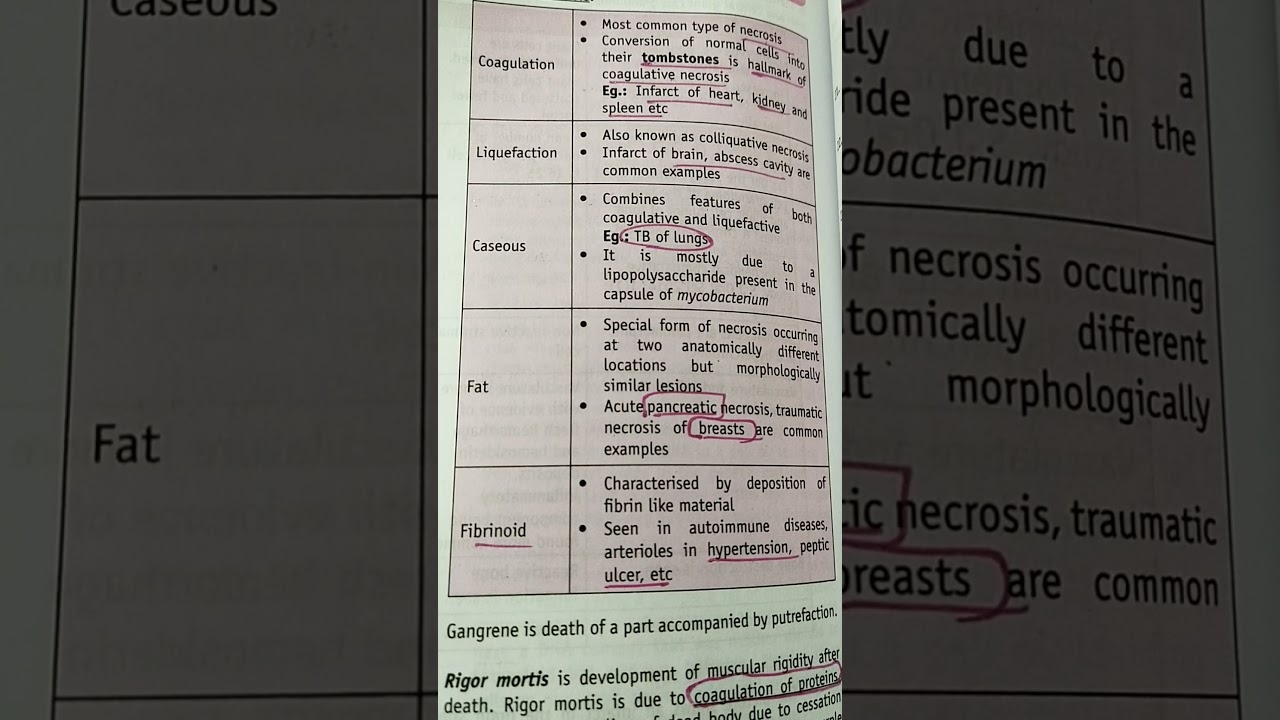 Coagulation
• Most common type of necrosis
• Conversion of normal cells into
their tombstones is hallmark of
coagulative necrosis
Eg.: Infarct of heart, kidney and
spleen etc
Liquefaction
• Also known as colliquative necrosis
• Infarct of brain, abscess cavity are
common examples
Caseous
• Combines features of both
coagulative and liquefactive
Eg.: TB of lungs
• It is mostly due to a
lipopolysaccharide present in the
capsule of mycobacterium
Fat
• Special form of necrosis occurring
at two anatomically different
locations but morphologically
similar lesions
• Acute pancreatic necrosis, traumatic
necrosis of breasts are common
examples
Fibrinoid
• Characterised by deposition of
fibrin like material
• Seen in autoimmune diseases,
arterioles in hypertension, peptic
ulcer, etc
Gangrene is death of a part accompanied by putrefaction.
Rigor mortis is development of muscular rigidity after
death. Rigor mortis is due to coagulation of proteins
body due to cessation
Caseous
Fat
tly due to a
ride present in the
obacterium
of necrosis occurring
tomically different
ut morphologically
ic necrosis, traumatic
breasts are common